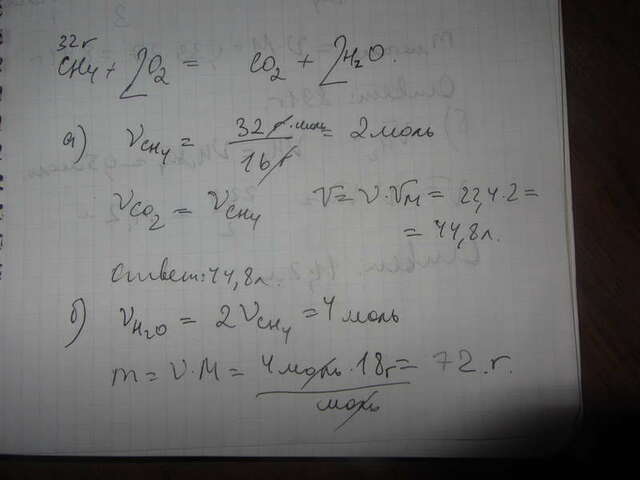 32 г
CH4 + 2O2 = CO2 + 2H2O.
а) νCH4 = 32 г·моль / 16 г = 2 моль
νCO2 = νCH4 V = ν·VM = 22,4·2 =
= 44,8 л.
Ответ: 44,8 л.
б) νH2O = 2νCH4 = 4 моль
m = ν·M = 4 моль·18 г / моль = 72 г.